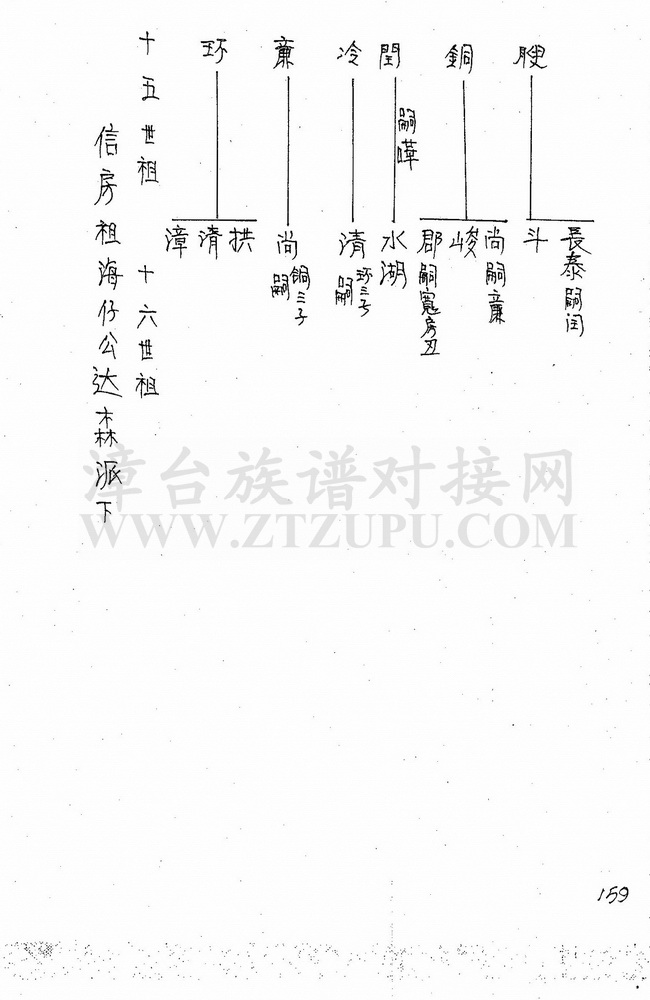 銅
閏
冷
亷
环
十五世祖
長泰嗣閏
斗
尚嗣亷
峻
郡嗣寬房丑
嗣嘩
水湖
清
环三子
嗣
尚
銅三子
嗣
拱
清
漳
十六世祖
信房祖海仔公达森派下
漳台族谱对接网
WWW.ZTZUPU.COM
159